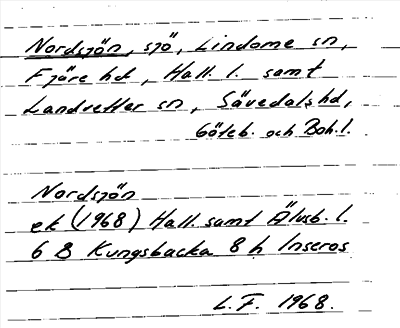 Nordsjön, sjö, Lindome sn,
Fjäre hd, Hall. l. samt
Landvetter sn, Sävedals hd,
Göteb. och Boh. l.
Nordsjön
ek (1968) Hall. samt Älvsb. l.
6 B Kungsbacka 8 h Inseros
L.F. 1968.